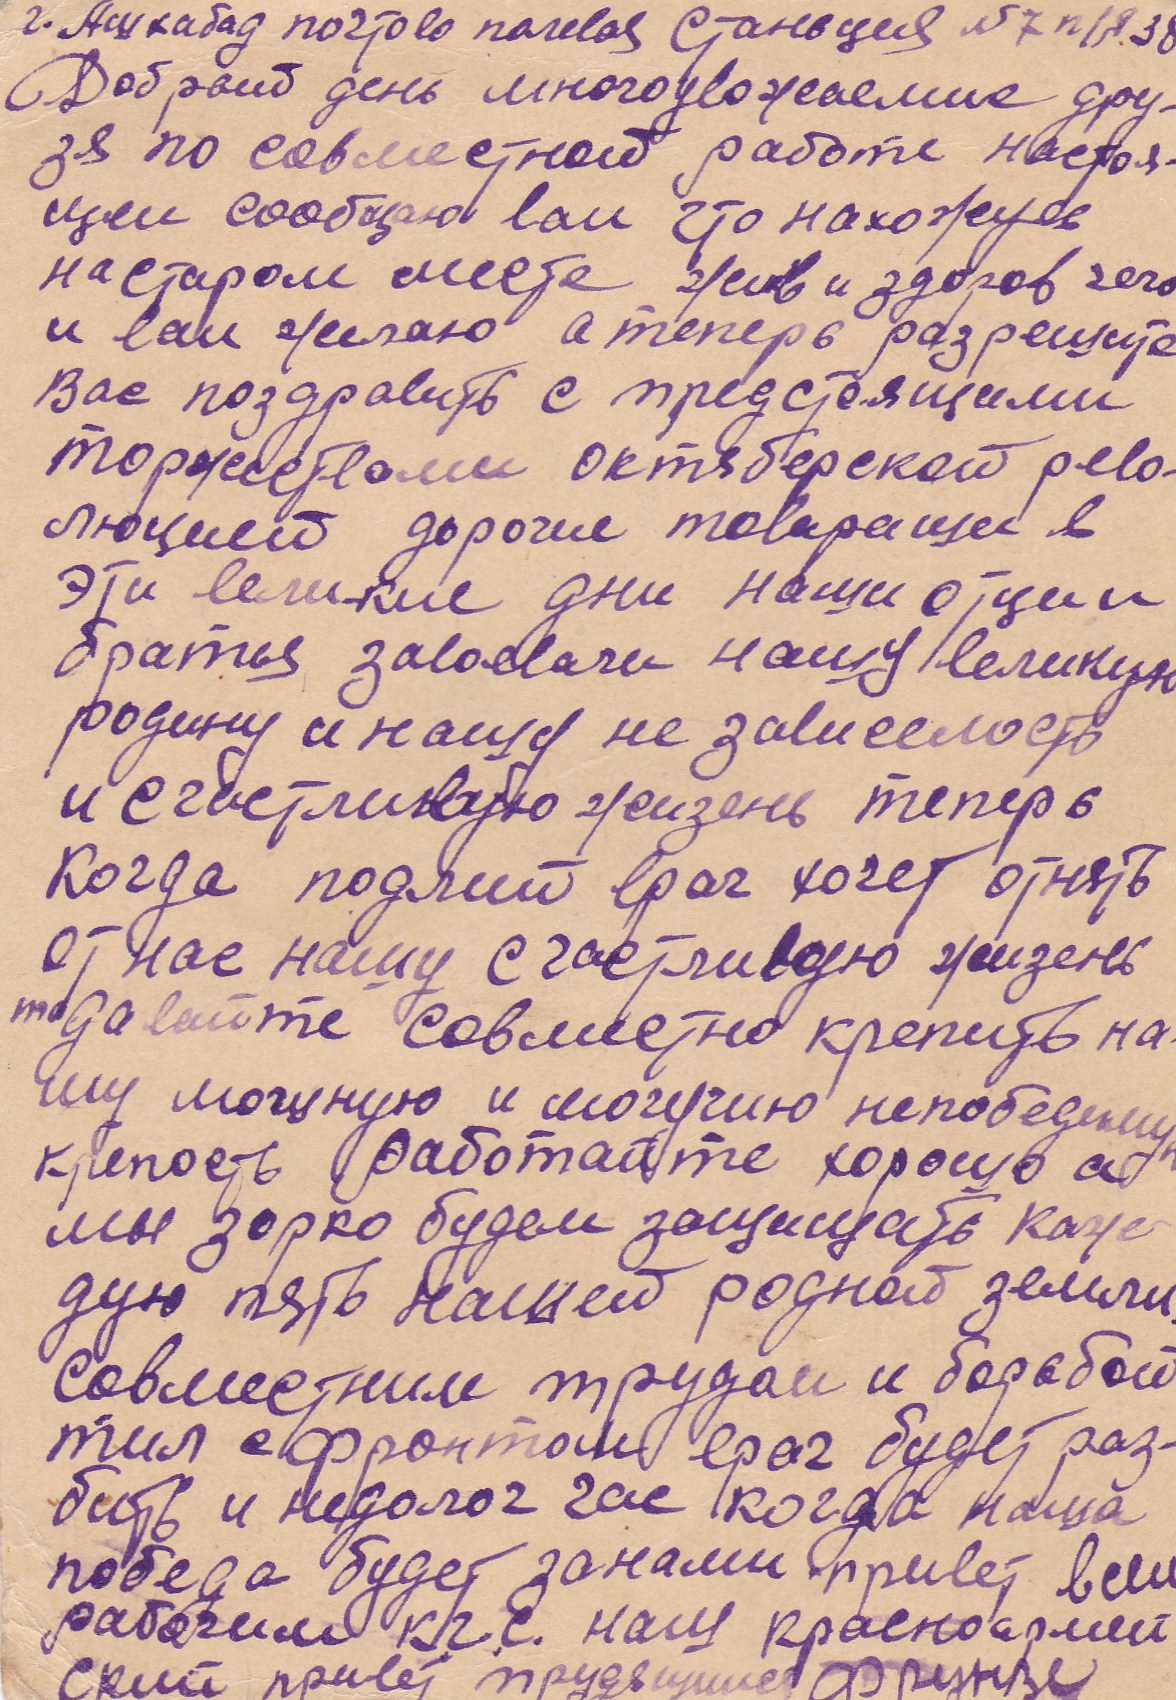 г. Ашхабад почтово паревоя Станьция №7 п/я. 38
Доброит день многоуважаемые дру-
зя по совместной работе настоя-
щем сообщаю вам что нахожусь
на старом месте жив и здоров чего
и вам желаю а теперь разрешите
Вас поздравить с предстоящими
торжествами октяберской рево-
люцией дорогие товарищи в
эти великие дни наши отци и
братья завоевали нашу великую
родину и нашу не зависемость
и счастливую жизень теперь
когда подлий враг хочет отнять
от нас нашу счастливую жизень
то давайте совместно крепить на-
шу мощную и могучию непобедимую
крепость работайте хорошо а
мы зорко будем защищать каж
дую пять нашей родной земли,
Совместним трудом и борьбой
тил с фронтом враг будет раз-
бить и недолог час когда наша
победа будет за нами привет всем
рабочим к.г.с. наш красноармей
ский привет трудящимся Фрунзе